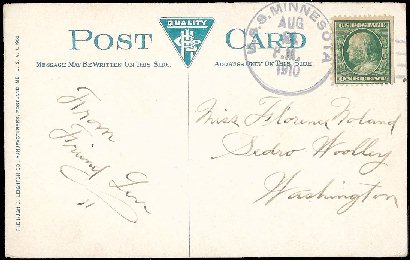 POST CARD
QUALITY
MESSAGE MAY BE WRITTEN ON THIS SIDE.
ADDRESS ONLY ON THIS SIDE.
U.S.S. MINNESOTA
AUG
P.M.
1910
From
Friend
Miss Florence Noland
Sedro Woolley
Washington